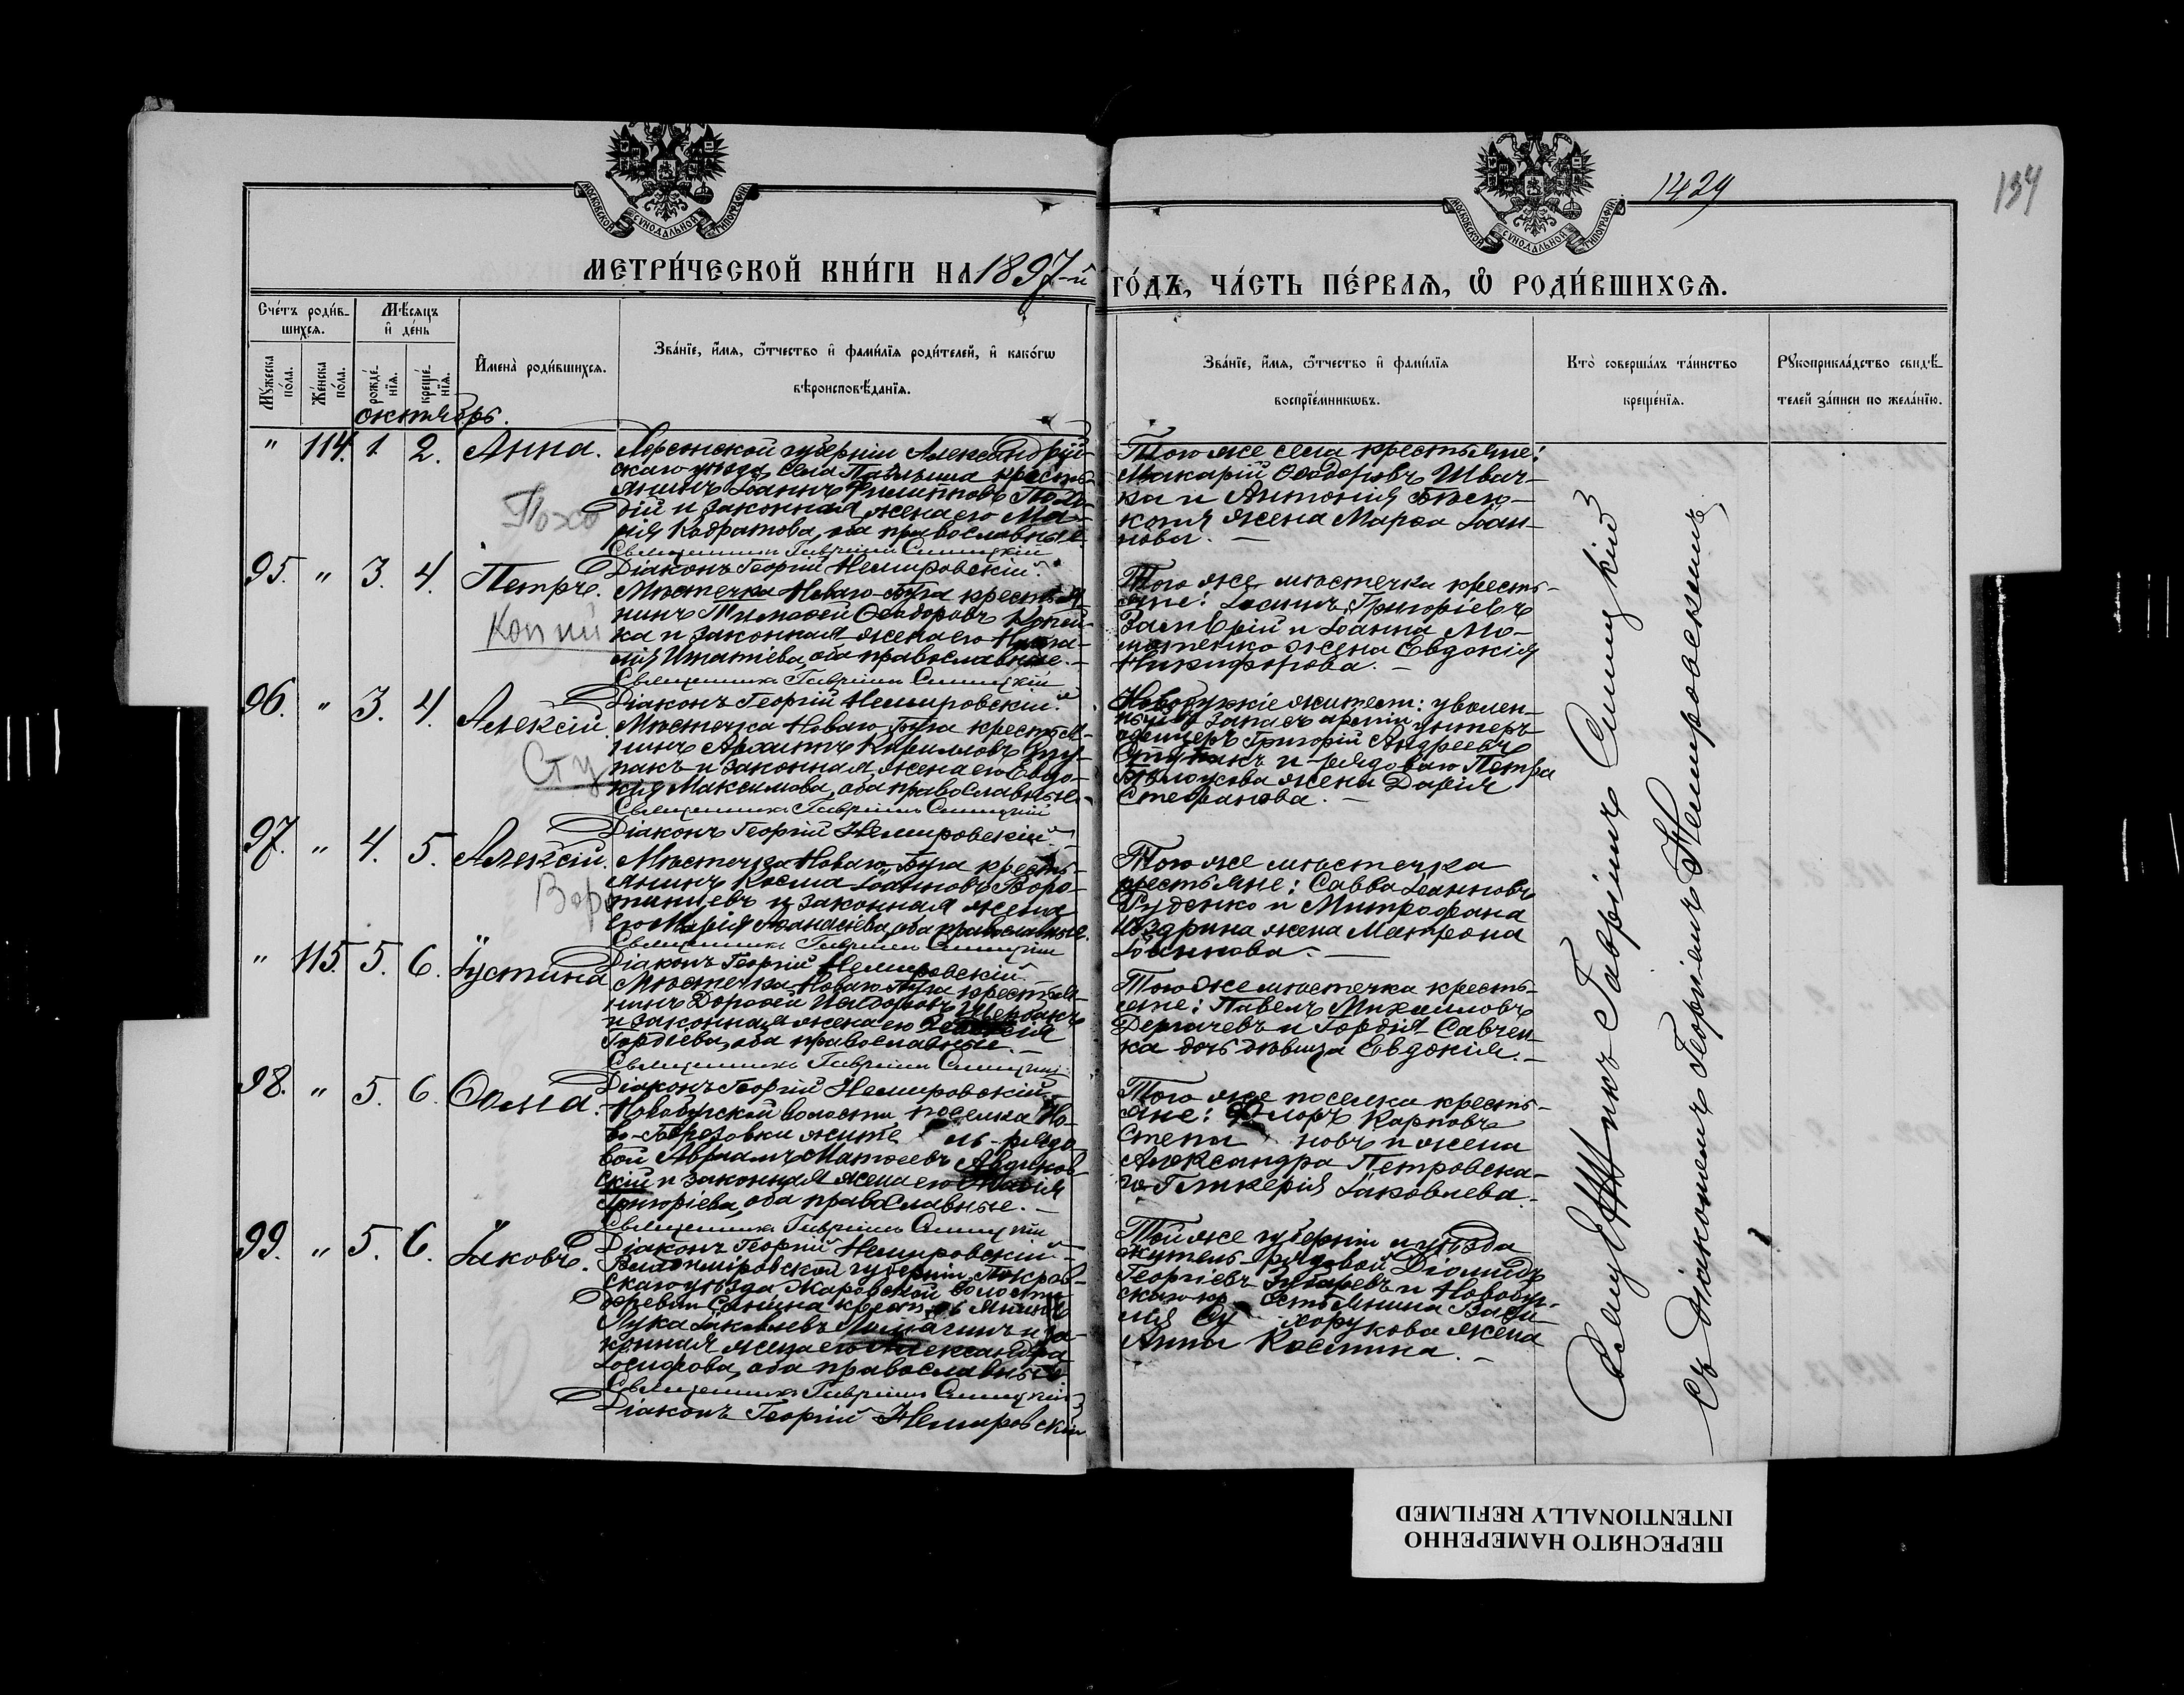 1429
134
МОСКОВСКОЙ СѴНОДАЛЬНОЙ ТИПОГРАФІИ
МОСКОВСКОЙ СѴНОДАЛЬНОЙ ТИПОГРАФІИ
МЕТРИ́ЧЕСКОЙ КНИ́ГИ НА 1897-й
ГО́ДЪ, ЧА́СТЬ ПЕ́РВАЯ, Ѡ РОДИ́ВШИХСЯ.
Сче́тъ роди́в-
шихся.
Мѣсяцъ
и де́нь
Му́жеска
по́ла.
Же́нска
по́ла.
рожде́-
нія.
креще́-
нія.
Имена̀ роди́вшихся.
Зва́нїе, и́мя, ѻ́тчество и фами́лїя роди́телей, и како́гѡ
вѣроисповѣ́данїя.
Зва́нїе, и́мя, ѻ́тчество и фами́лїя
воспрїе́мникѡвъ.
Кто̀ соверша́лъ та́инство
креще́нїя.
Рукоприкла́дство свидѣ́-
телей за́писи по жела́нїю.
октябрь.
" 114. 1. 2. Анна.
Херсонской губерніи Александрій-
скаго уѣзда, села Павлыша кресть-
янинъ Іоаннъ Филипповъ Похо-
дій и законная жена его Ма-
рія Кодратова, оба православные.
Похо
Священникъ Гавріилъ Синицкій
Діаконъ Георгій Немировскій.
Того же села крестьяне:
Макарій Ѳеодоровъ Швач-
ка и Антонія
жена Марѳа Іоан-
нова.
95. " 3. 4. Петръ.
Мѣстечка Новаго-Буга крестья-
нинъ Тимоѳей Ѳеодоровъ Копій-
ка и законная жена его Ната-
лія Игнатіева, оба православные.
Копий
Священникъ Гавріилъ Синицкій
Діаконъ Георгій Немировскій.
Того же мѣстечка кресть-
яне: Іоаннъ Григоріевъ
и Іоанна
жена Евдокія
Никифорова.
96. " 3. 4. Алексій.
Мѣстечка Новаго-Буга крестья-
нинъ Архиппъ Кирилловъ Сту-
пакъ и законная жена его Евдо-
кія Максимова, оба православные.
Сту
Священникъ Гавріилъ Синицкій
Діаконъ Георгій Немировскій
Новобугскіе жители: уволен-
ный въ запасъ арміи унтеръ-
офицеръ Григорій Андреевъ
Ступакъ и рядоваго Петра
Бѣлоусова жена Дарія
Стефанова.
97. " 4. 5. Алексій.
Мѣстечка Новаго-Буга кресть-
янинъ Косма Іоанновъ Воро-
тынцевъ и законная жена
его Марія Аѳанасіева, оба православные.
Вор
Священникъ Гавріилъ Синицкій
Діаконъ Георгій Немировскій
Того же мѣстечка
крестьяне: Савва Іоанновъ
Руденко и Митрофана
жена Матрона
Іоаннова.
" 115. 5. 6. Іустина
Мѣстечка Новаго-Буга крестья-
нинъ Дороѳей Исидоровъ Щербакъ
и законная жена его
Гордіева, оба православные.
Священникъ Гавріилъ Синицкій
Діаконъ Георгій Немировскій
Того же мѣстечка кресть-
яне: Павелъ Михаиловъ
Дергачевъ и Гордія Савчен-
ка дочь дѣвица Евдокія.
98. " 5. 6. Ѳома.
Новобугской волости поселка Но-
во-Березовки житель-рядо-
вой Авраамъ Матѳеевъ
и законная жена его Марія
Григоріева, оба православные.
Священникъ Гавріилъ Синицкій
Діаконъ Георгій Немировскій
Того же поселка кресть-
яне: Флоръ Карповъ
Степановъ и жена
Александра Петровска-
го Гликерія Іаковлева.
99. " 5. 6. Іаковъ.
Владимірской губерніи, Покров-
скаго уѣзда Жаровской волости
деревни крестьянинъ
Лука Іаковлевъ и за-
конная жена его Александра
Іосифова, оба православные.
Священникъ Гавріилъ Синицкій
Діаконъ Георгій Немировскій
Той же губерніи и уѣзда
житель-рядовой Діомидъ
Георгіевъ и Новобуг-
скаго крестьянина Васи-
лія жена
Анна
Священникъ Гавріилъ Синицкій
съ Діакономъ Георгіемъ Немировскимъ
ПЕРЕСНЯТО НАМЕРЕННО
INTENTIONALLY REFILMED